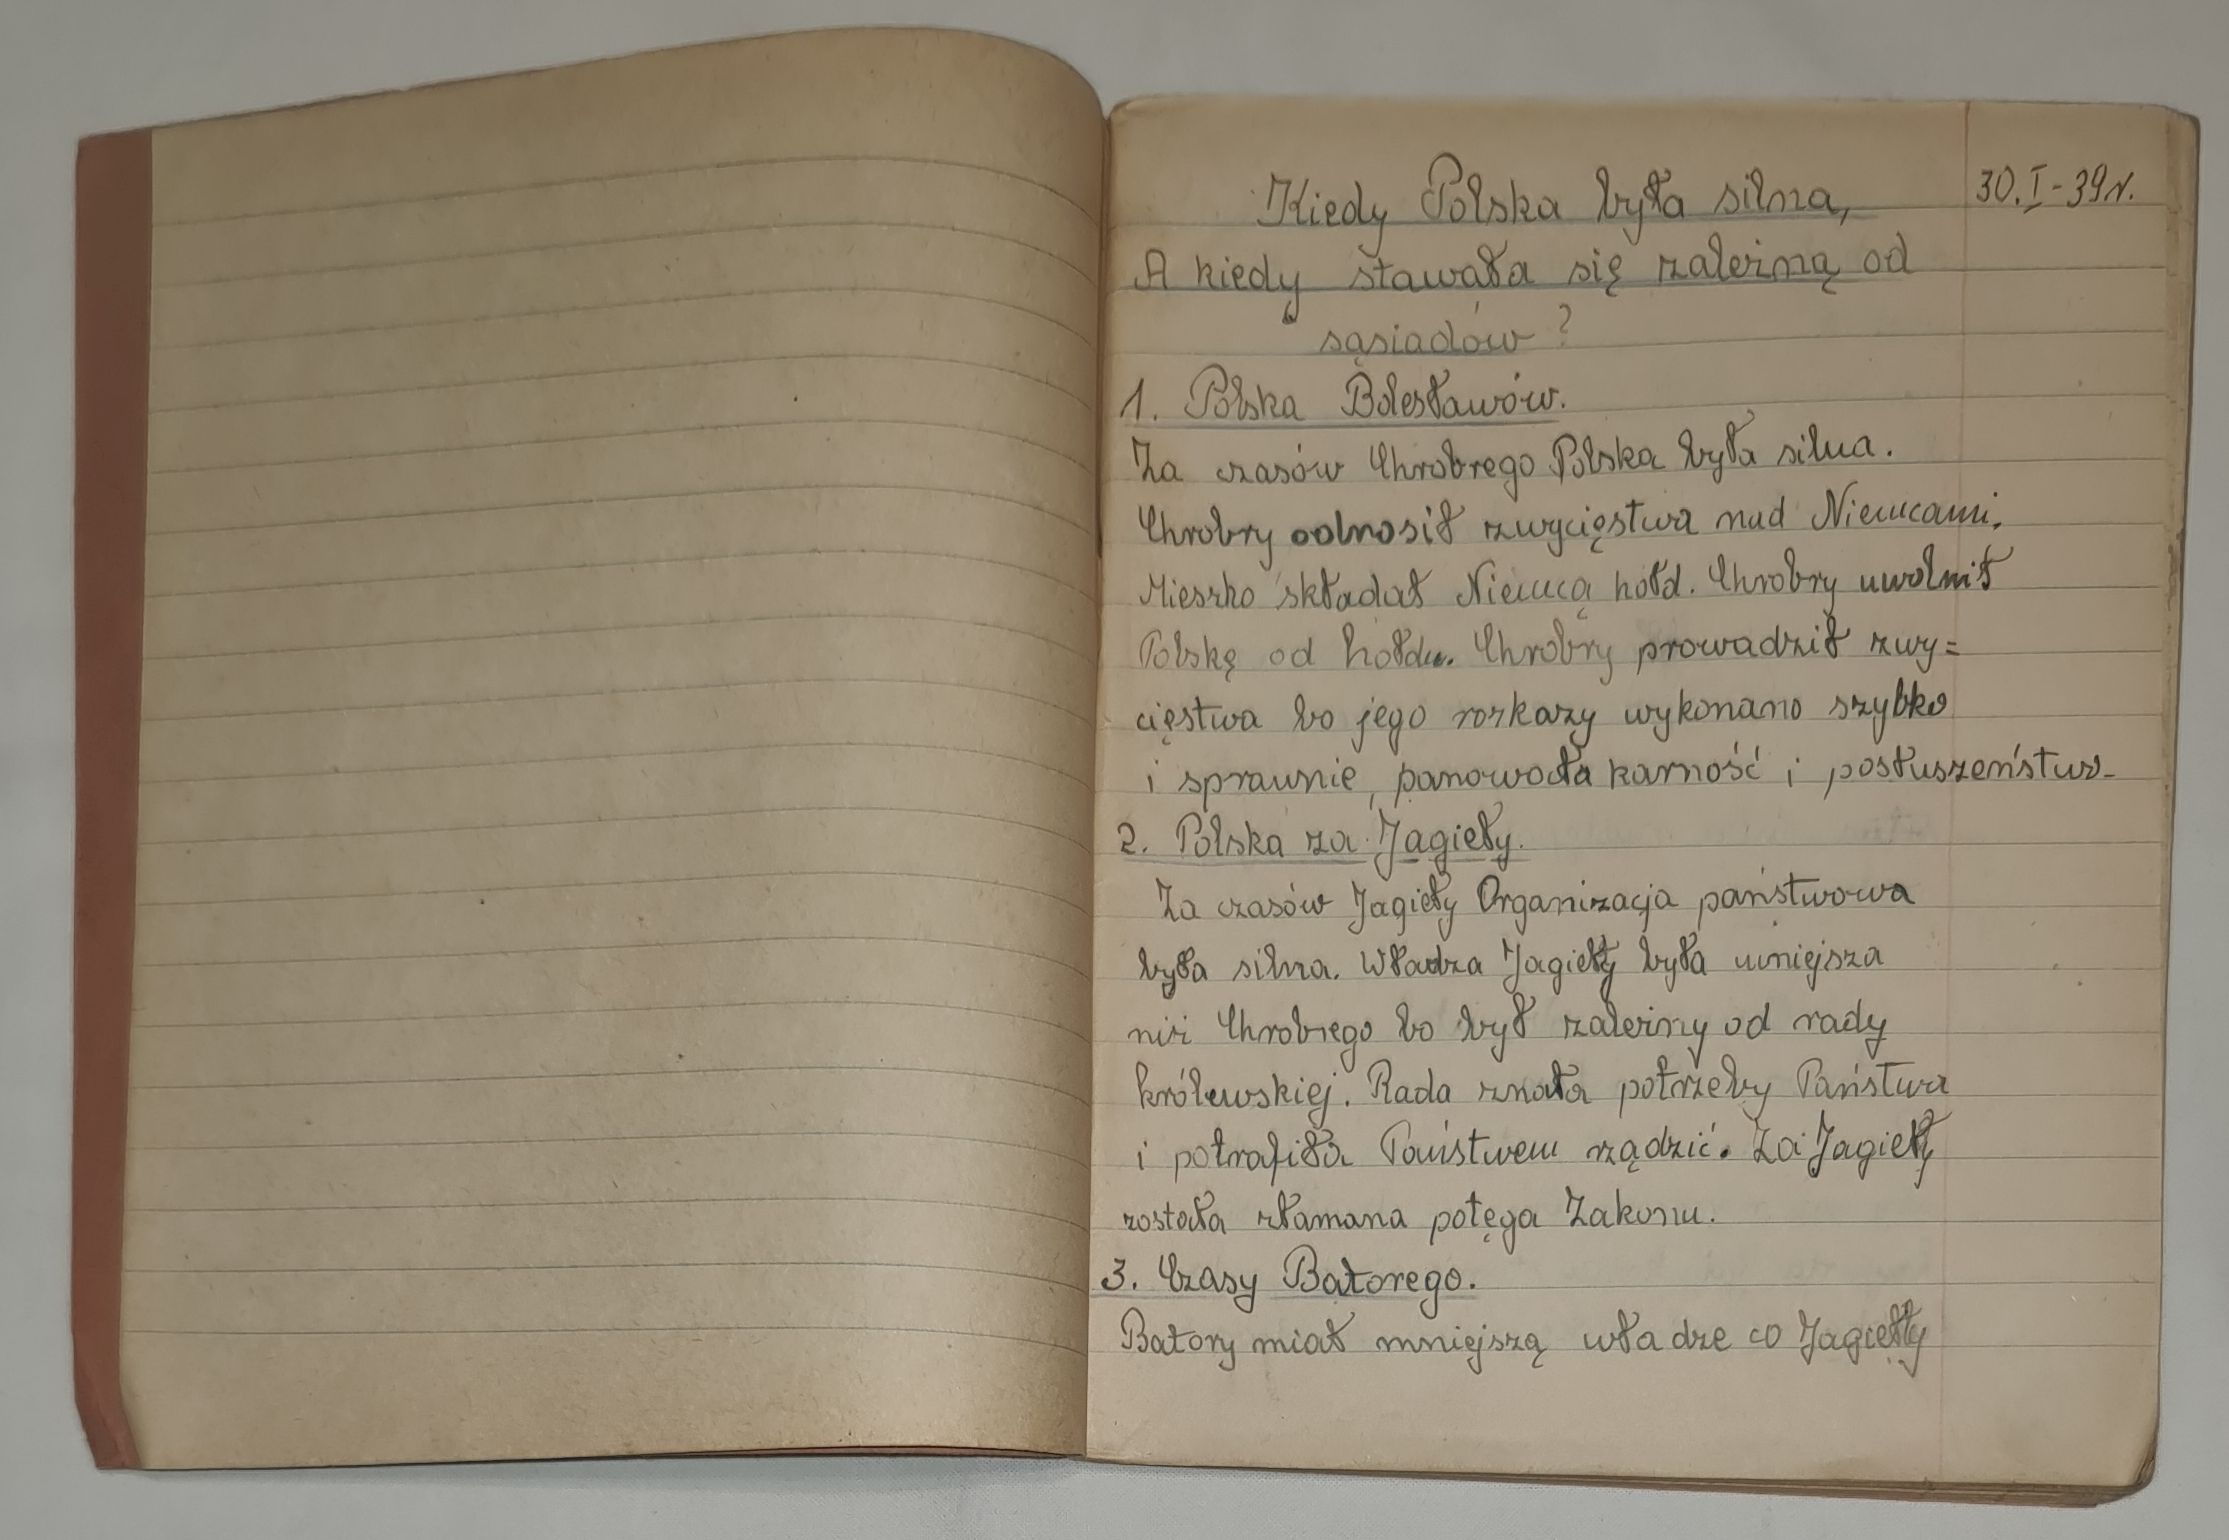 Kiedy Polska była silna,
30.I-39r.
A kiedy stawała się zależną od
sąsiadów?
1. Polska Bolesławów.
Za czasów Chrobrego Polska była silna.
Chrobry odnosił zwycięstwa nad Niemcami.
Mieszko składał Niemcą hołd. Chrobry uwolnił
Polskę od hołdu. Chrobry prowadził zwy=
cięstwa bo jego rozkazy wykonano szybko
i sprawnie, panowała karność i posłuszeństwo-
2. Polska za Jagieły.
Za czasów Jagieły Organizacja państwowa
była silna. Władza Jagiełły była mniejsza
niż Chrobrego bo był zależny od rady
królewskiej. Rada znała potrzeby Państwa
i potrafiła Państwem rządzić. Za Jagiełły
została złamana potęga Zakonu.
3. Czasy Batorego.
Batory miał mniejszą władze co Jagiełły